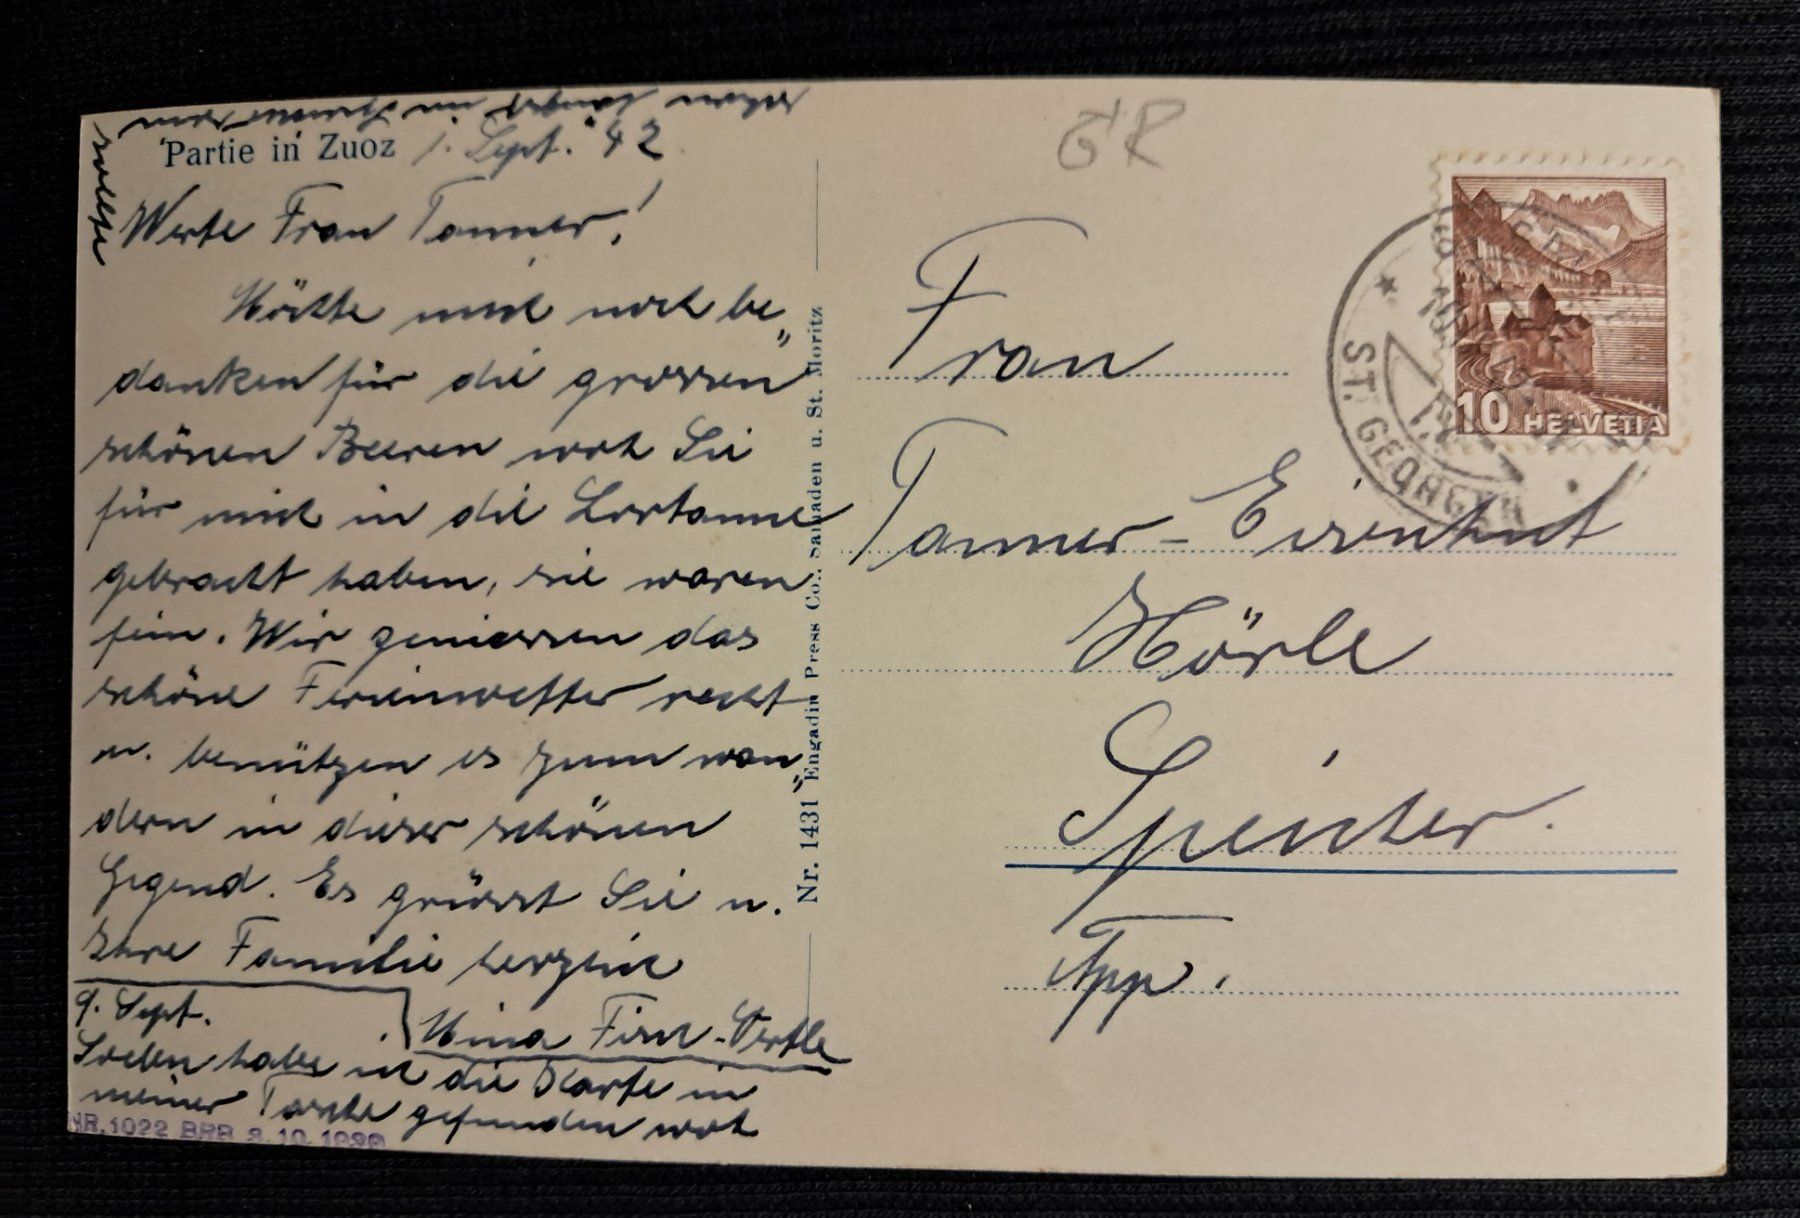 Partie in Zuoz 1. Sept. 42
Werte Frau Tanner!
Möchte mich noch be"
danken für die grossen
schönen Beeren wo Sie
für mich in die
gebracht haben, sie waren
fein. Wir geniessen das
schöne Ferienwetter recht
u. benützen es zum wan"
dern in dieser schönen
Gegend. Es grüsst Sie u.
Ihre Familie herzlich
Mina
9. Sept.
Soeben habe ich die Karte in
meiner Tasche gefunden
schon längst im Speicher sein
sollte
NR. 1022 BRB 3.10.1939
Nr. 1431 Engadin Press Co., Samaden u. St. Moritz
GR
Frau
Tanner-Eisenhut
Hörle
Speicher.
App.
10 HELVETIA
ST. GEORGEN